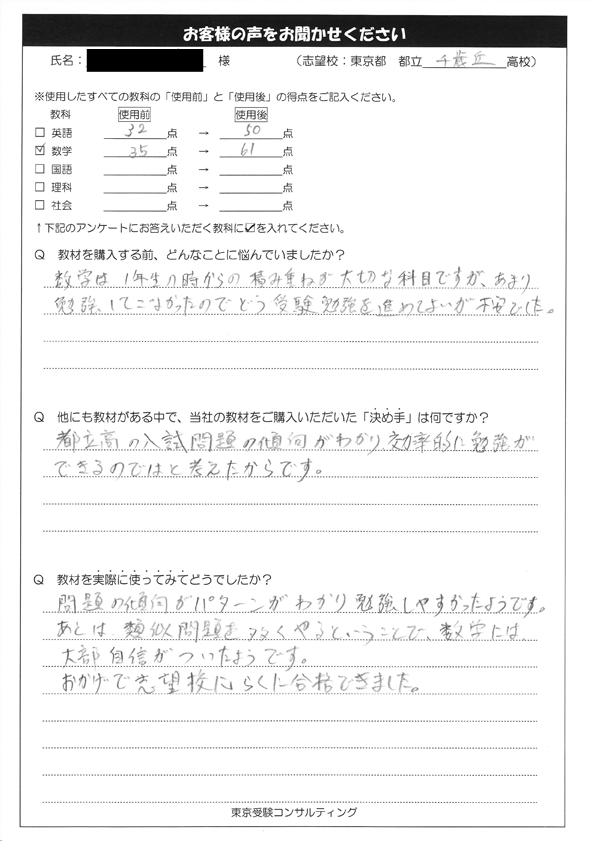 お客様の声をお聞かせください
氏名： 様 （志望校：東京都 都立 千歳丘 高校）
※使用したすべての教科の「使用前」と「使用後」の得点をご記入ください。
教科 使用前 使用後
□ 英語 32 点 → 50 点
☑ 数学 35 点 → 61 点
□ 国語 点 → 点
□ 理科 点 → 点
□ 社会 点 → 点
↑下記のアンケートにお答えいただく教科に☑を入れてください。
Q 教材を購入する前、どんなことに悩んでいましたか？
数学は1年生の時からの積み重ねが大切な科目ですが、あまり
勉強してこなかったのでどう受験勉強を進めてよいか不安でした。
Q 他にも教材がある中で、当社の教材をご購入いただいた「決め手」は何ですか？
都立高の入試問題の傾向がわかり効率的に勉強が
できるのではと考えたからです。
Q 教材を実際に使ってみてどうでしたか？
問題の傾向がパターンがわかり勉強しやすかったようです。
あとは類似問題を多くやるということで、数学には
大部自信がついたようです。
おかげで志望校にらくに合格できました。
東京受験コンサルティング